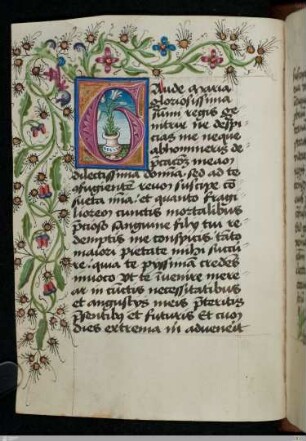 Gaude maria
gloriosissima
sum̄i regis ge
nitrix ne despi
cias me neque
abhomineris
pctōrem
dilectissima domīa: sed ad te
confugientē reum suscipe cō
sueta mīa: et quanto fragi
liorem cunctis mortalibus
pcioso sanguine filij tui re
demptis me conspicis tāto
maiori pietate mihi succur
re: quia te pyssimā credēs
inuoco Ut te īuenire mere
ar in cūctis necessitatibus
et angustijs meis pteritis
psentibȝ et futuris Et cum
dies extrema m̄ aduenerit